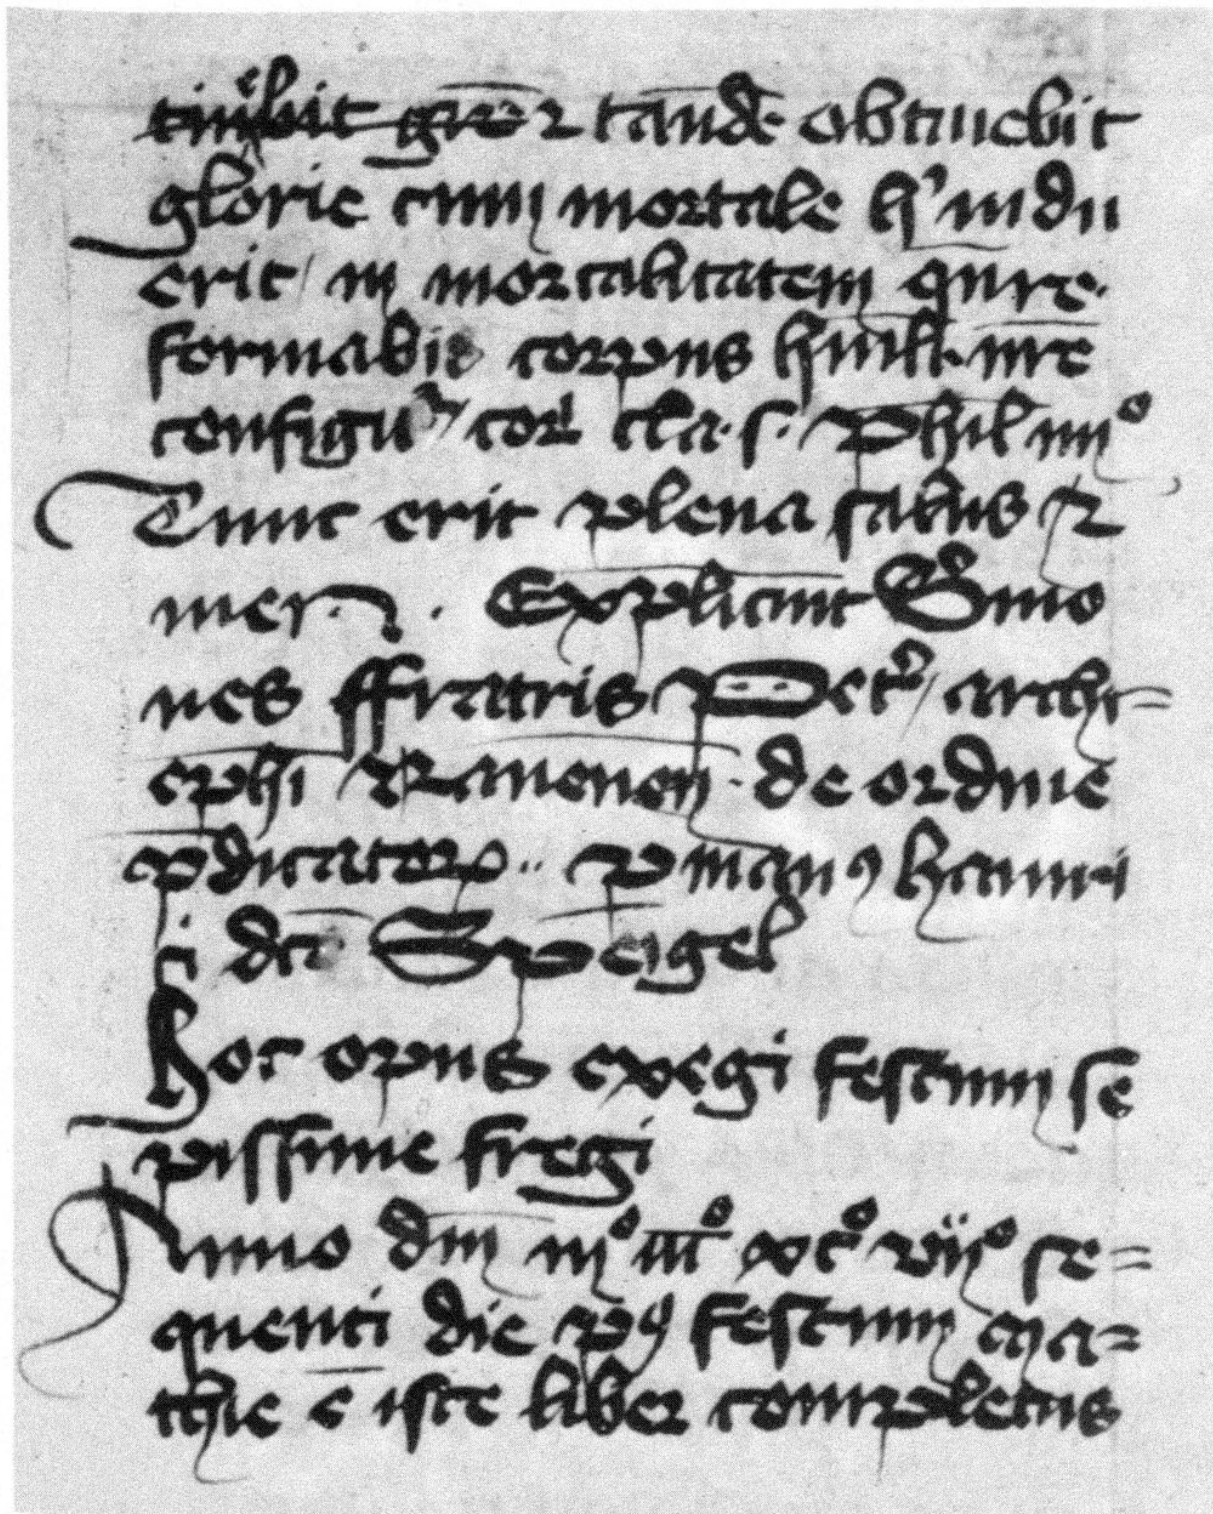 tinebit gͬcͣ ⁊ tandē obtinebit
glorie cum mortale hͦ indu
erit / in mortalitatem qui re
formabit corpus huīl. nr̄e
configuͬ / cor cla. s. Phil iiiͦ
Tunc erit plena salus Et
mer. . Expliciūt Sͬmo
nes ffratris Petͥ / archi=
ep̄hi Rauenēn . de ordine
p̄dicator .. p man9 hainri
ci dc̄i Speigel
Hoc opus exegi festum se
pissime fregi
Anno dn̄i mͦ iiiͦ xcͦ viiͦ se=
quenti die p9 festum Ma=
thie ē iste liber completus